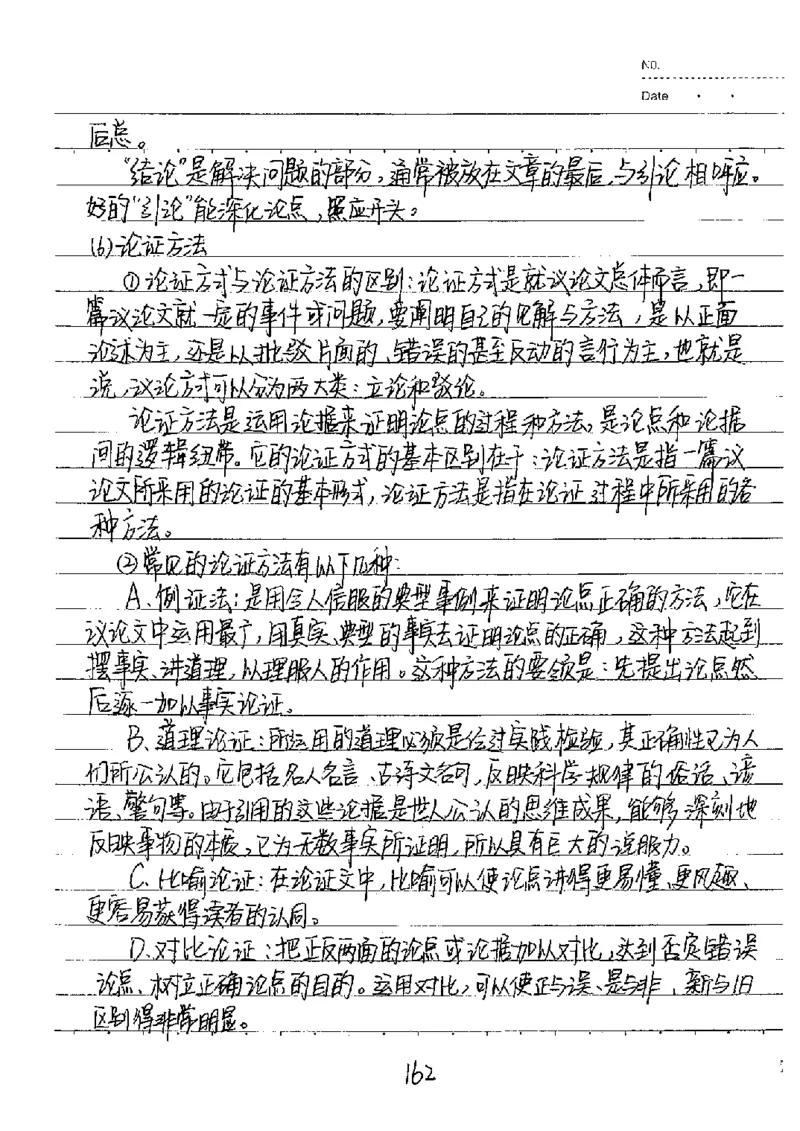 No.
Date
后总。
"结论"是解决问题的部分，通常被放在文章的最后，与引论相呼应。
好的"引论"能深化论点，照应开头。
(6)论证方法
①论证方式与论证方法的区别：论证方式是就议论文总体而言，即一
篇议论文就一定的事件或问题，要阐明自己的见解与方法，是从正面
论述为主，还是以批驳片面的、错误的甚至反动的言行为主，也就是
说，议论方式可以分为两大类：立论和驳论。
论证方法是运用论据来证明论点的过程和方法。是论点和论据
间的逻辑纽带。它的论证方式的基本区别在于：论证方法是指一篇议
论文所采用的论证的基本形式，论证方法是指在论证过程中所采用的各
种方法。
②常见的论证方法有以下几种：
A、例证法：是用令人信服的典型事例来证明论点正确的方法，它在
议论文中运用最广，用真实、典型的事实去证明论点的正确，这种方法起到
摆事实、讲道理，以理服人的作用。这种方法的要领是：先提出论点然
后逐一加以事实论证。
B、道理论证：所运用的道理必须是经过实践检验，其正确性已为人
们所公认的。它包括名人名言、古诗文名句，反映科学规律的俗话、谚
语、警句等。由于引用的这些论据是世人公认的思维成果，能够深刻地
反映事物的本质，已为无数事实所证明，所以具有巨大的说服力。
C、比喻论证：在论证文中，比喻可以使论点讲得更易懂、更风趣、
更容易获得读者的认同。
D、对比论证：把正反两面的论点或论据加以对比，达到否定错误
论点、树立正确论点的目的。运用对比，可以使正与误、是与非、新与旧
区别得非常明显。
162